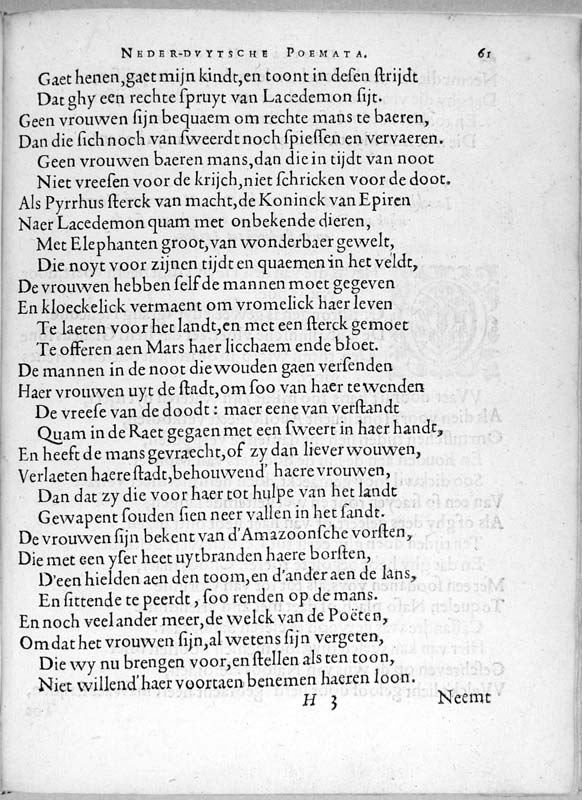 NEDER-DVYTSCHE POEMATA. 61
Gaet henen, gaet mijn kindt, en toont in desen strijdt
Dat ghy een rechte spruyt van Lacedemon sijt.
Geen vrouwen sijn bequaem om rechte mans te baeren,
Dan die sich noch van sweerdt noch spiessen en vervaeren.
Geen vrouwen baeren mans, dan die in tijdt van noot
Niet vreesen voor de krijch, niet schricken voor de doot.
Als Pyrrhus sterck van macht, de Koninck van Epiren
Naer Lacedemon quam met onbekende dieren,
Met Elephanten groot, van wonderbaer gewelt,
Die noyt voor zijnen tijdt en quaemen in het veldt,
De vrouwen hebben self de mannen moet gegeven
En kloeckelick vermaent om vromelick haer leven
Te laeten voor het landt, en met een sterck gemoet
Te offeren aen Mars haer licchaem ende bloet.
De mannen in de noot die wouden gaen versenden
Haer vrouwen uyt de stadt, om soo van haer te wenden
De vreese van de doodt: maer eene van verstandt
Quam in de Raet gegaen met een sweert in haer handt,
En heeft de mans gevraecht, of zy dan liever wouwen,
Verlaeten haere stadt, behouwend' haere vrouwen,
Dan dat zy die voor haer tot hulpe van het landt
Gewapent souden sien neer vallen in het sandt.
De vrouwen sijn bekent van d'Amazoonsche vorsten,
Die met een yser heet uytbranden haere borsten,
D'een hielden aen den toom, en d'ander aen de lans,
En sittende te peerdt, soo renden op de mans.
En noch veel ander meer, de welck van de Poëten,
Om dat het vrouwen sijn, al wetens sijn vergeten,
Die wy nu brengen voor, en stellen als ten toon,
Niet willend' haer voortaen benemen haeren loon.
H 3 Neemt